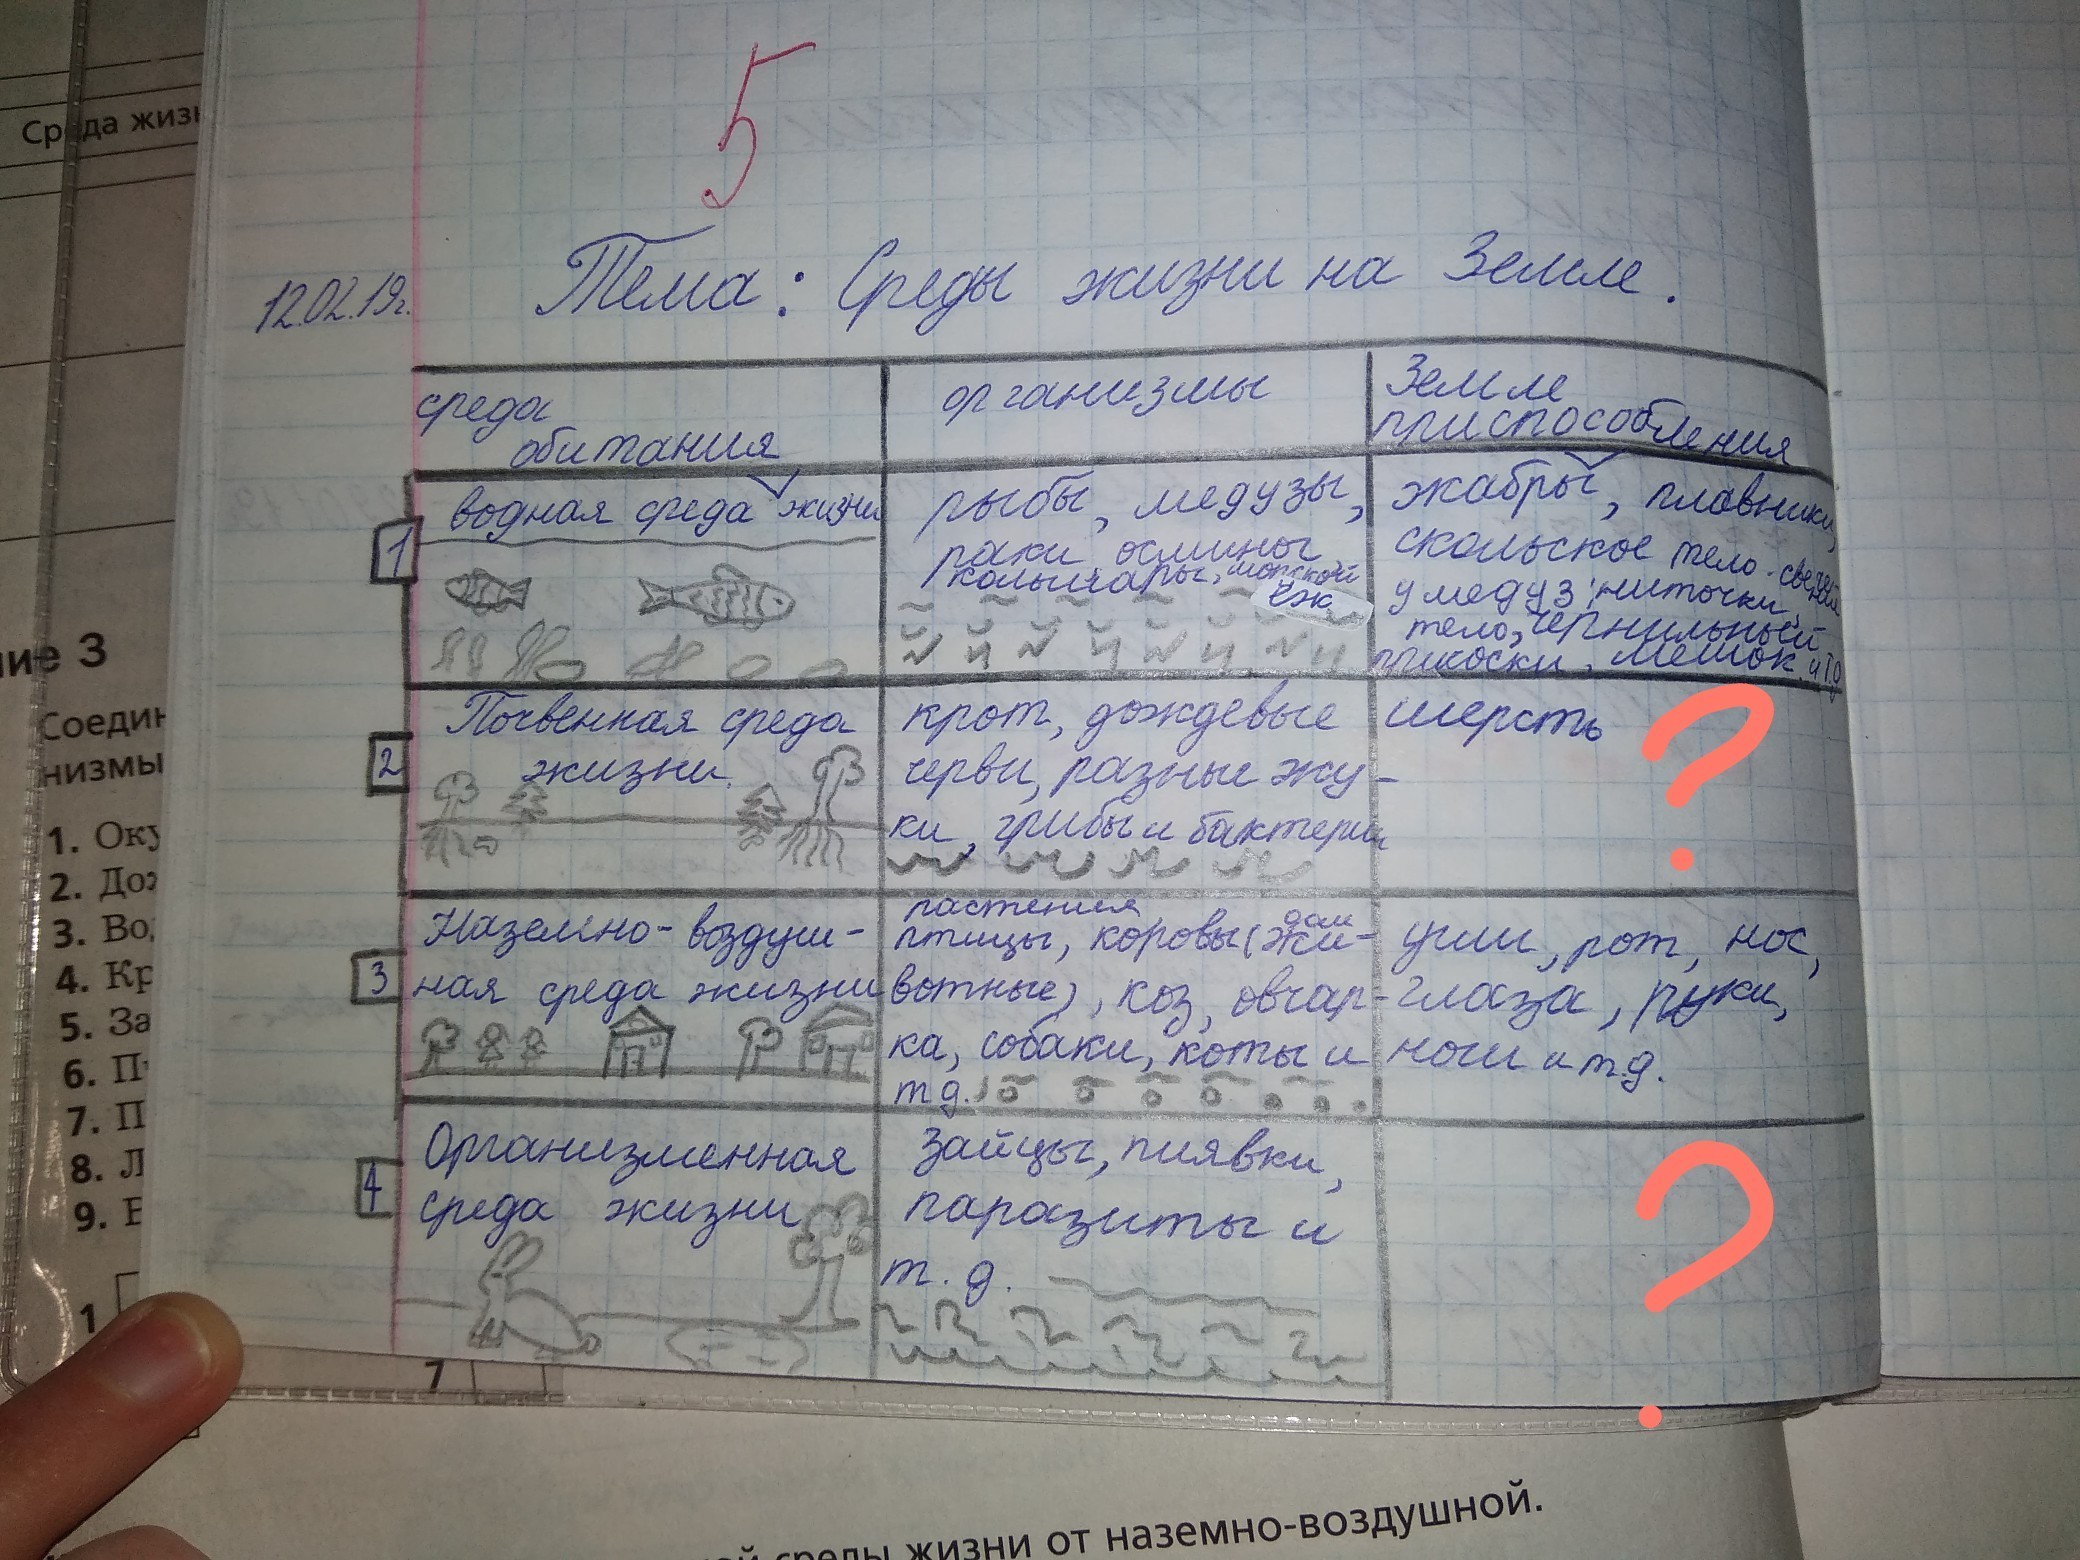 Среда жизн
5
12.02.19г.
Тема: Среды жизни на Земле.
среда обитания
организмы
Земле приспособления
1
водная среда жизни
рыбы, медузы,
раки осмины
кольчары, морской
ёж
жабры, плавники,
скольское тело. свечения
у медуз: ниточки,
тело, чернильный
присоски, мешок. и т.д
2
Почвенная среда
жизни.
крот, дождевые
черви, разные жу-
ки, грибы и бактерии
шерсть
?
3
Наземно-воздуш-
ная среда жизни
растения
птицы, коровы (дом жи-
вотные), коз, овчар-
ка, собаки, коты и
т д.
уши, рот, нос,
глаза, руки,
ноги и т.д.
4
Организменная
среда жизни
Зайцы, пиявки,
паразиты и
т. д.
?
ие 3
Соедин
низмы
1. Оку
2. Дож
3. Во
4. Кр
5. За
6. П
7. П
8. Л
9. Е
1
7
ой среды жизни от наземно-воздушной.